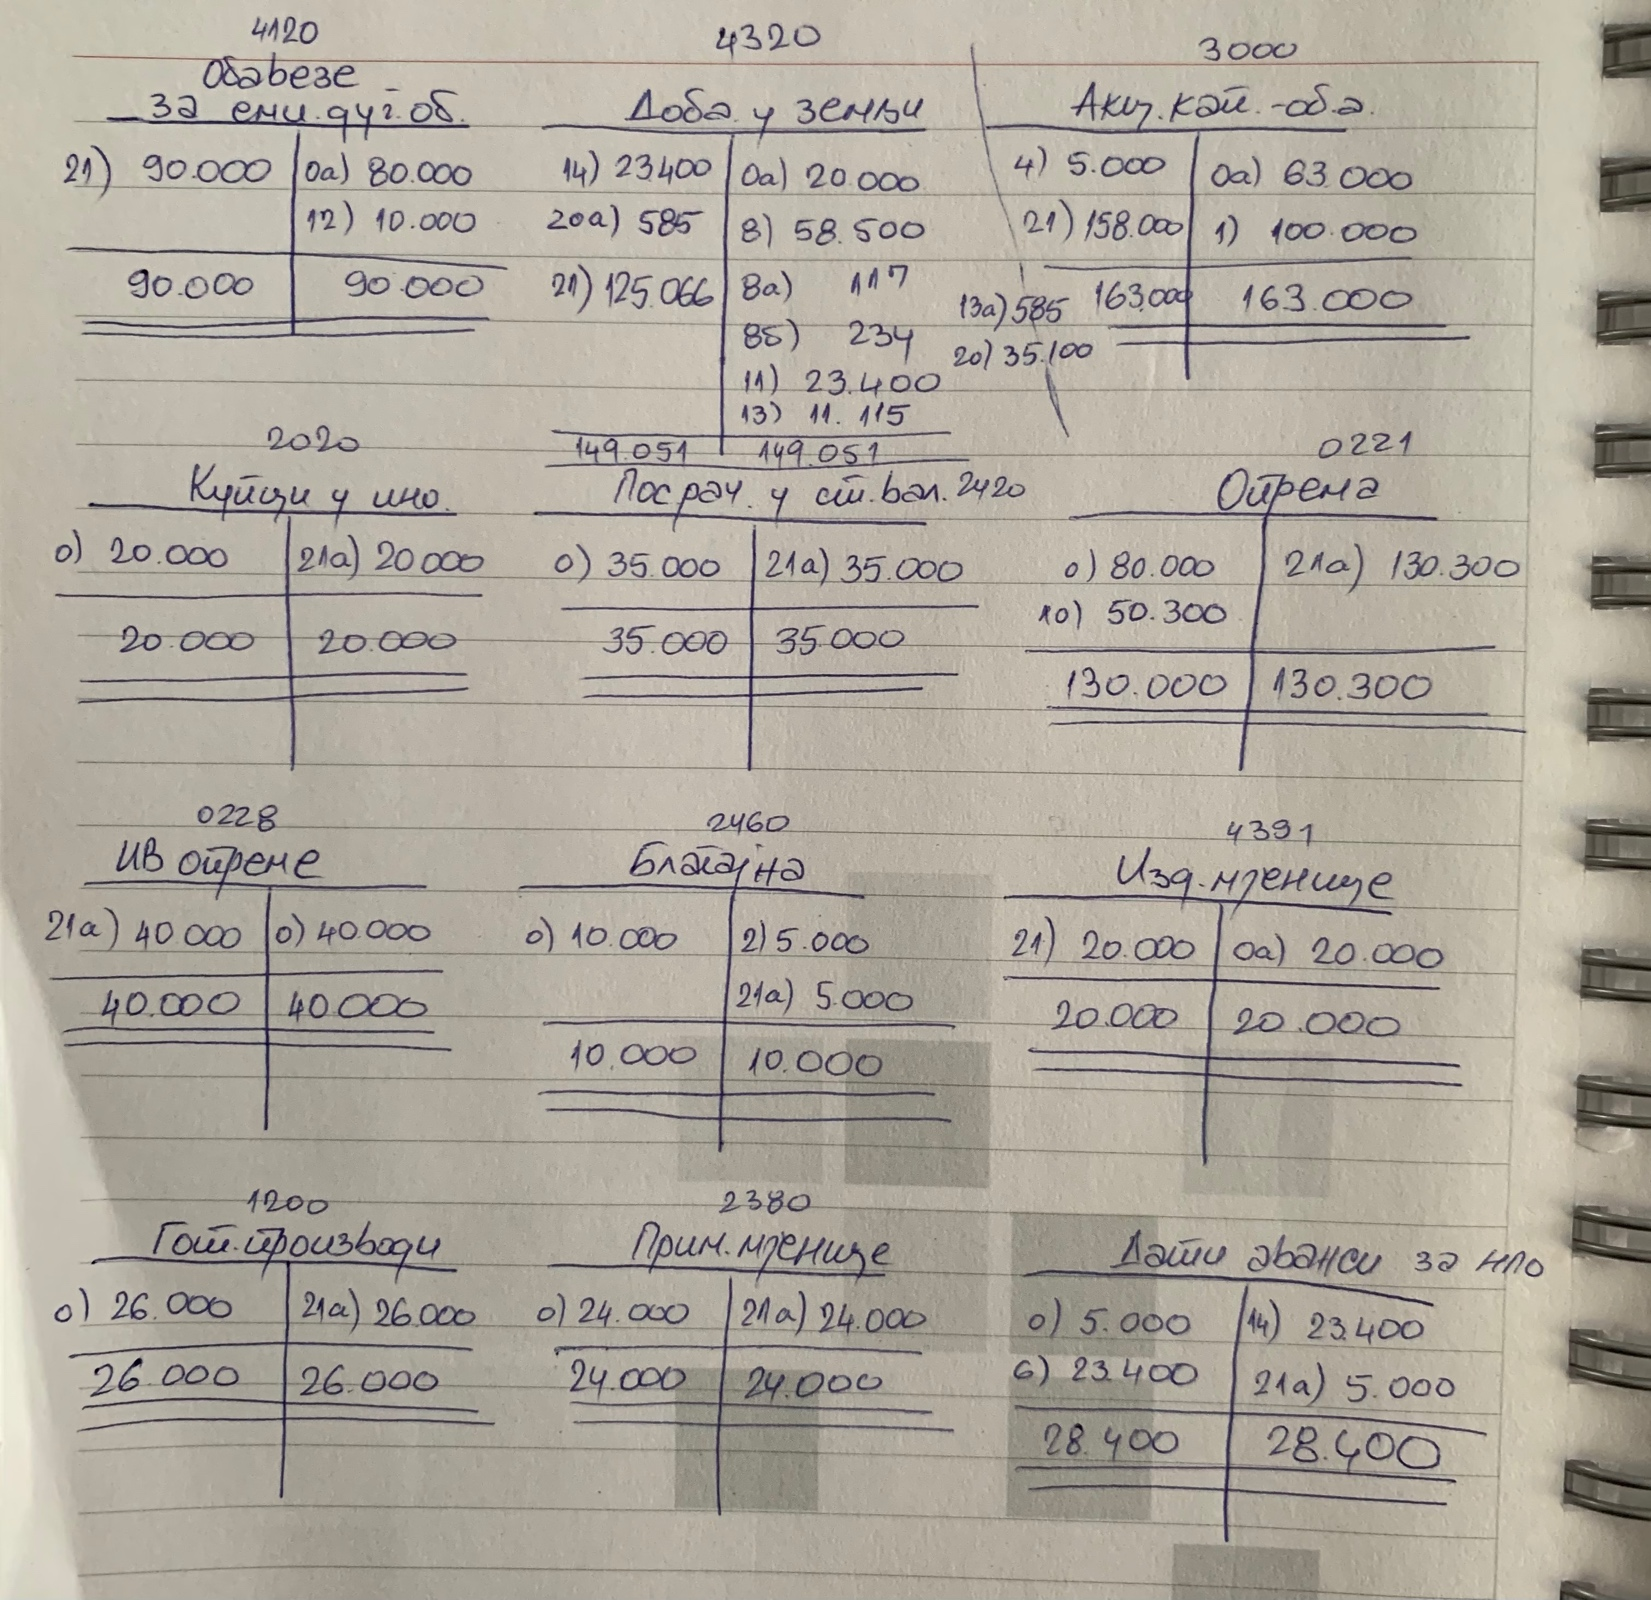 4120
Обавезе
за еми.дуг.об.
21) 90.000 0а) 80.000
12) 10.000
90.000 90.000
4320
Доба. у земљи
14) 23.400 0а) 20.000
20а) 585 8) 58.500
21) 125.066 8а) 117
8б) 234
11) 23.400
13) 11.115
149.051 149.051
13а) 585
20) 35.100
3000
Акц. кап. -об.а.
4) 5.000 0а) 63.000
21) 158.000 1) 100.000
163.000 163.000
2020
Купци у ино.
0) 20.000 21а) 20.000
20.000 20.000
Пос.рач. у ст.вал. 2420
0) 35.000 21а) 35.000
35.000 35.000
0221
Опрема
0) 80.000 21а) 130.300
10) 50.300
130.000 130.300
0228
ИВ опреме
21а) 40.000 0) 40.000
40.000 40.000
2460
Благајна
0) 10.000 2) 5.000
21а) 5.000
10.000 10.000
4391
Изд. мјенице
21) 20.000 0а) 20.000
20.000 20.000
1200
Гот. производи
0) 26.000 21а) 26.000
26.000 26.000
2380
Прим. мјенице
0) 24.000 21а) 24.000
24.000 24.000
Дати аванси за НПО
0) 5.000 14) 23.400
6) 23.400 21а) 5.000
28.400 28.400